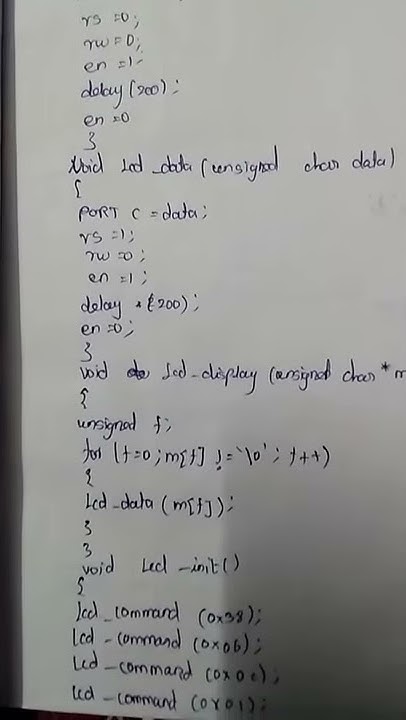 rs =0;
rw = 0;
en =1;
delay (200);
en =0
}
Void Lcd_data (unsigned char data)
{
PORT C = data;
rs =1;
rw =0;
en =1;
delay (200);
en =0;
}
void lcd_display (unsigned char * m
{
unsigned f;
for (f=0; m[f] != '\0'; f++)
{
Lcd_data (m[f]);
}
}
void Lcd_init()
{
lcd_command (0x38);
Lcd_command (0x06);
Lcd_command (0x0c);
Lcd_command (0x01);